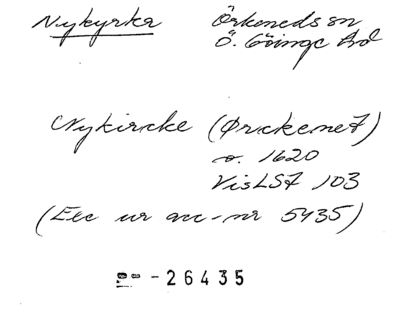 Nykyrka Örkeneds sn
Ö. Göinge hd
Nykircke (Ørckenet)
o. 1620
VisLSt 103
(Exc ur acc-nr 5435)
-26435